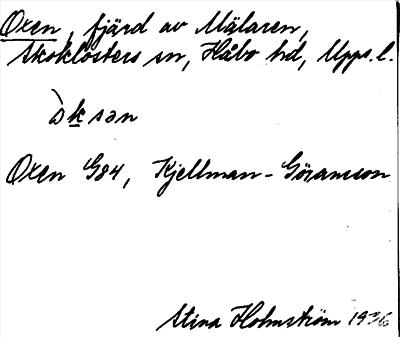 Oxen, fjärd av Mälaren,
Skoklosters sn, Håbo hd, Upps. l.
ò̀ksən
Oxen G84, Kjellman-Göranson
Stina Holmström 1936